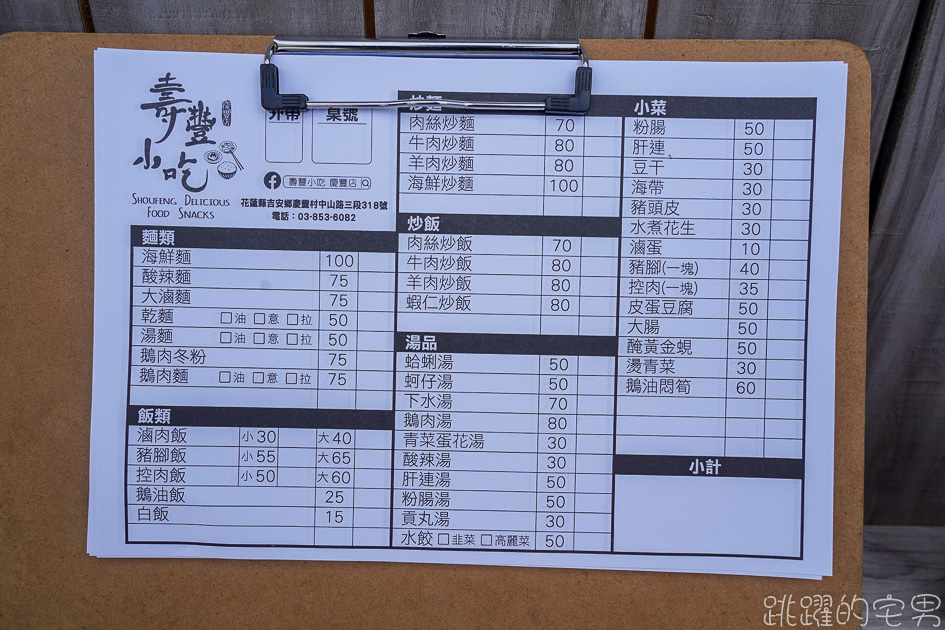 壽豐小吃
SHOUFENG DELICIOUS
FOOD SNACKS
外帶
桌號
壽豐小吃 慶豐店
花蓮縣吉安鄉慶豐村中山路三段318號
電話：03-853-6082
麵類
海鮮麵 100
酸辣麵 75
大滷麵 75
乾麵 □油 □意 □拉 50
湯麵 □油 □意 □拉 50
鵝肉冬粉 75
鵝肉麵 □油 □意 □拉 75
飯類
滷肉飯 小30 大40
豬腳飯 小55 大65
控肉飯 小50 大60
鵝油飯 25
白飯 15
炒麵
肉絲炒麵 70
牛肉炒麵 80
羊肉炒麵 80
海鮮炒麵 100
炒飯
肉絲炒飯 70
牛肉炒飯 80
羊肉炒飯 80
蝦仁炒飯 80
湯品
蛤蜊湯 50
蚵仔湯 50
下水湯 70
鵝肉湯 80
青菜蛋花湯 30
酸辣湯 30
肝連湯 50
粉腸湯 50
貢丸湯 30
水餃 □韭菜 □高麗菜 50
小菜
粉腸 50
肝連 50
豆干 30
海帶 30
豬頭皮 30
水煮花生 30
滷蛋 10
豬腳(一塊) 40
控肉(一塊) 35
皮蛋豆腐 50
大腸 50
醃黃金蜆 50
燙青菜 30
鵝油悶筍 60
小計
跳躍的宅男